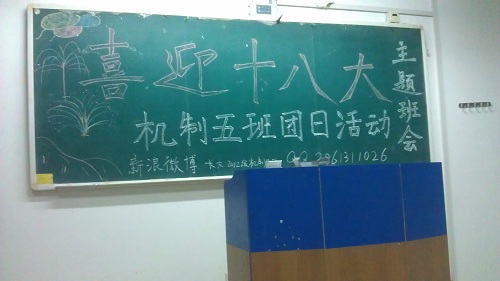 喜迎十八大
主题班会
机制五班团日活动
新浪微博 长大2012级机制五班 QQ 2961311026